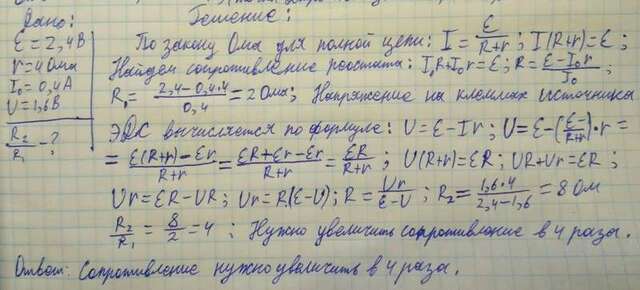 Дано:
ε = 2,4 В
r = 4 Ома
I₀ = 0,4 А
U = 1,6 В
R₂/R₁ - ?
Решение:
По закону Ома для полной цепи: I = ε/(R+r); I(R+r) = ε;
Найдем сопротивление реостата: I₀R+I₀r = ε; R = (ε-I₀r)/I₀;
R₁ = (2,4-0,4·4)/0,4 = 2 Ома; Напряжение на клеммах источника
ЭДС вычисляется по формуле: U = ε-Ir; U = ε-(ε/(R+r))·r =
= (ε(R+r)-εr)/(R+r) = (εR+εr-εr)/(R+r) = εR/(R+r); U(R+r) = εR; UR+Ur = εR;
Ur = εR-UR; Ur = R(ε-U); R = Ur/(ε-U); R₂ = (1,6·4)/(2,4-1,6) = 8 Ом
R₂/R₁ = 8/2 = 4; Нужно увеличить сопротивление в 4 раза.
Ответ: Сопротивление нужно увеличить в 4 раза.